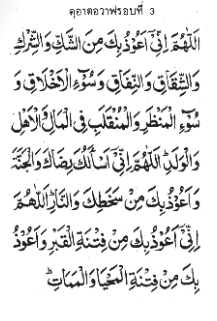 ดุอาตอวาฟรอบที่ 3
اَللّٰهُمَّ اِنِّىْ اَعُوْذُ بِكَ مِنَ الشَّكِّ وَالشِّرْكِ
وَالشِّقَاقِ وَالنِّفَاقِ وَسُوْءِ الْاَخْلَاقِ وَ
سُوْءِ الْمَنْظَرِ وَالْمُنْقَلَبِ فِى الْمَالِ وَالْاَهْلِ
وَالْوَلَدِ اَللّٰهُمَّ اِنِّىْ اَسْاَلُكَ رِضَاكَ وَالْجَنَّةَ
وَاَعُوْذُ بِكَ مِنْ سَخَطِكَ وَالنَّارِ اَللّٰهُمَّ
اِنِّىْ اَعُوْذُ بِكَ مِنْ فِتْنَةِ الْقَبْرِ وَاَعُوْذُ
بِكَ مِنْ فِتْنَةِ الْمَحْيَا وَالْمَمَاتِ